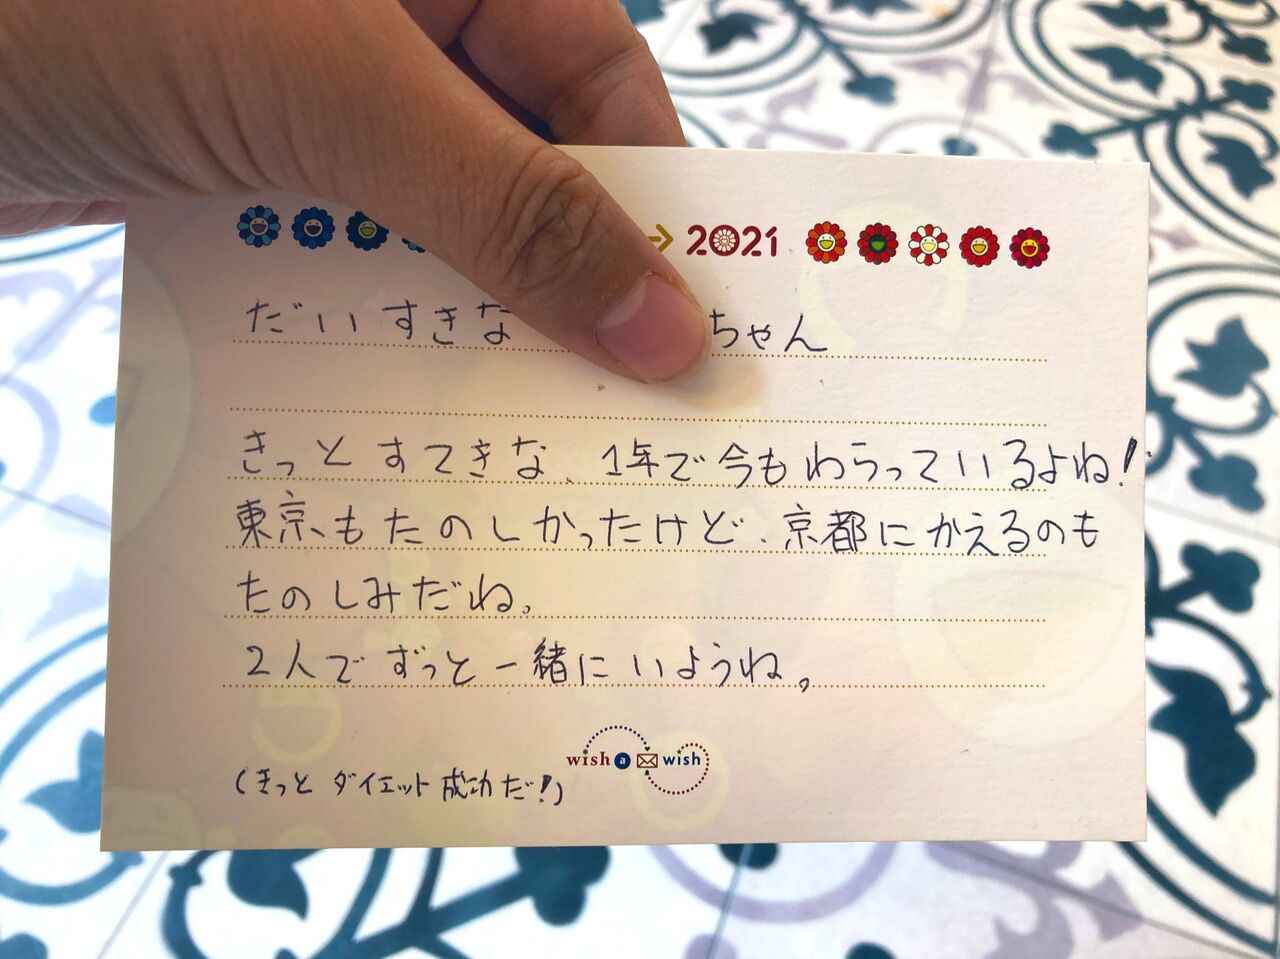 → 2021
だいすきな ちゃん
きっとすてきな、1年で今もわらっているよね!
東京もたのしかったけど、京都にかえるのも
たのしみだね。
2人でずっと一緒にいようね。
wish a wish
(きっとダイエット成功だ!)